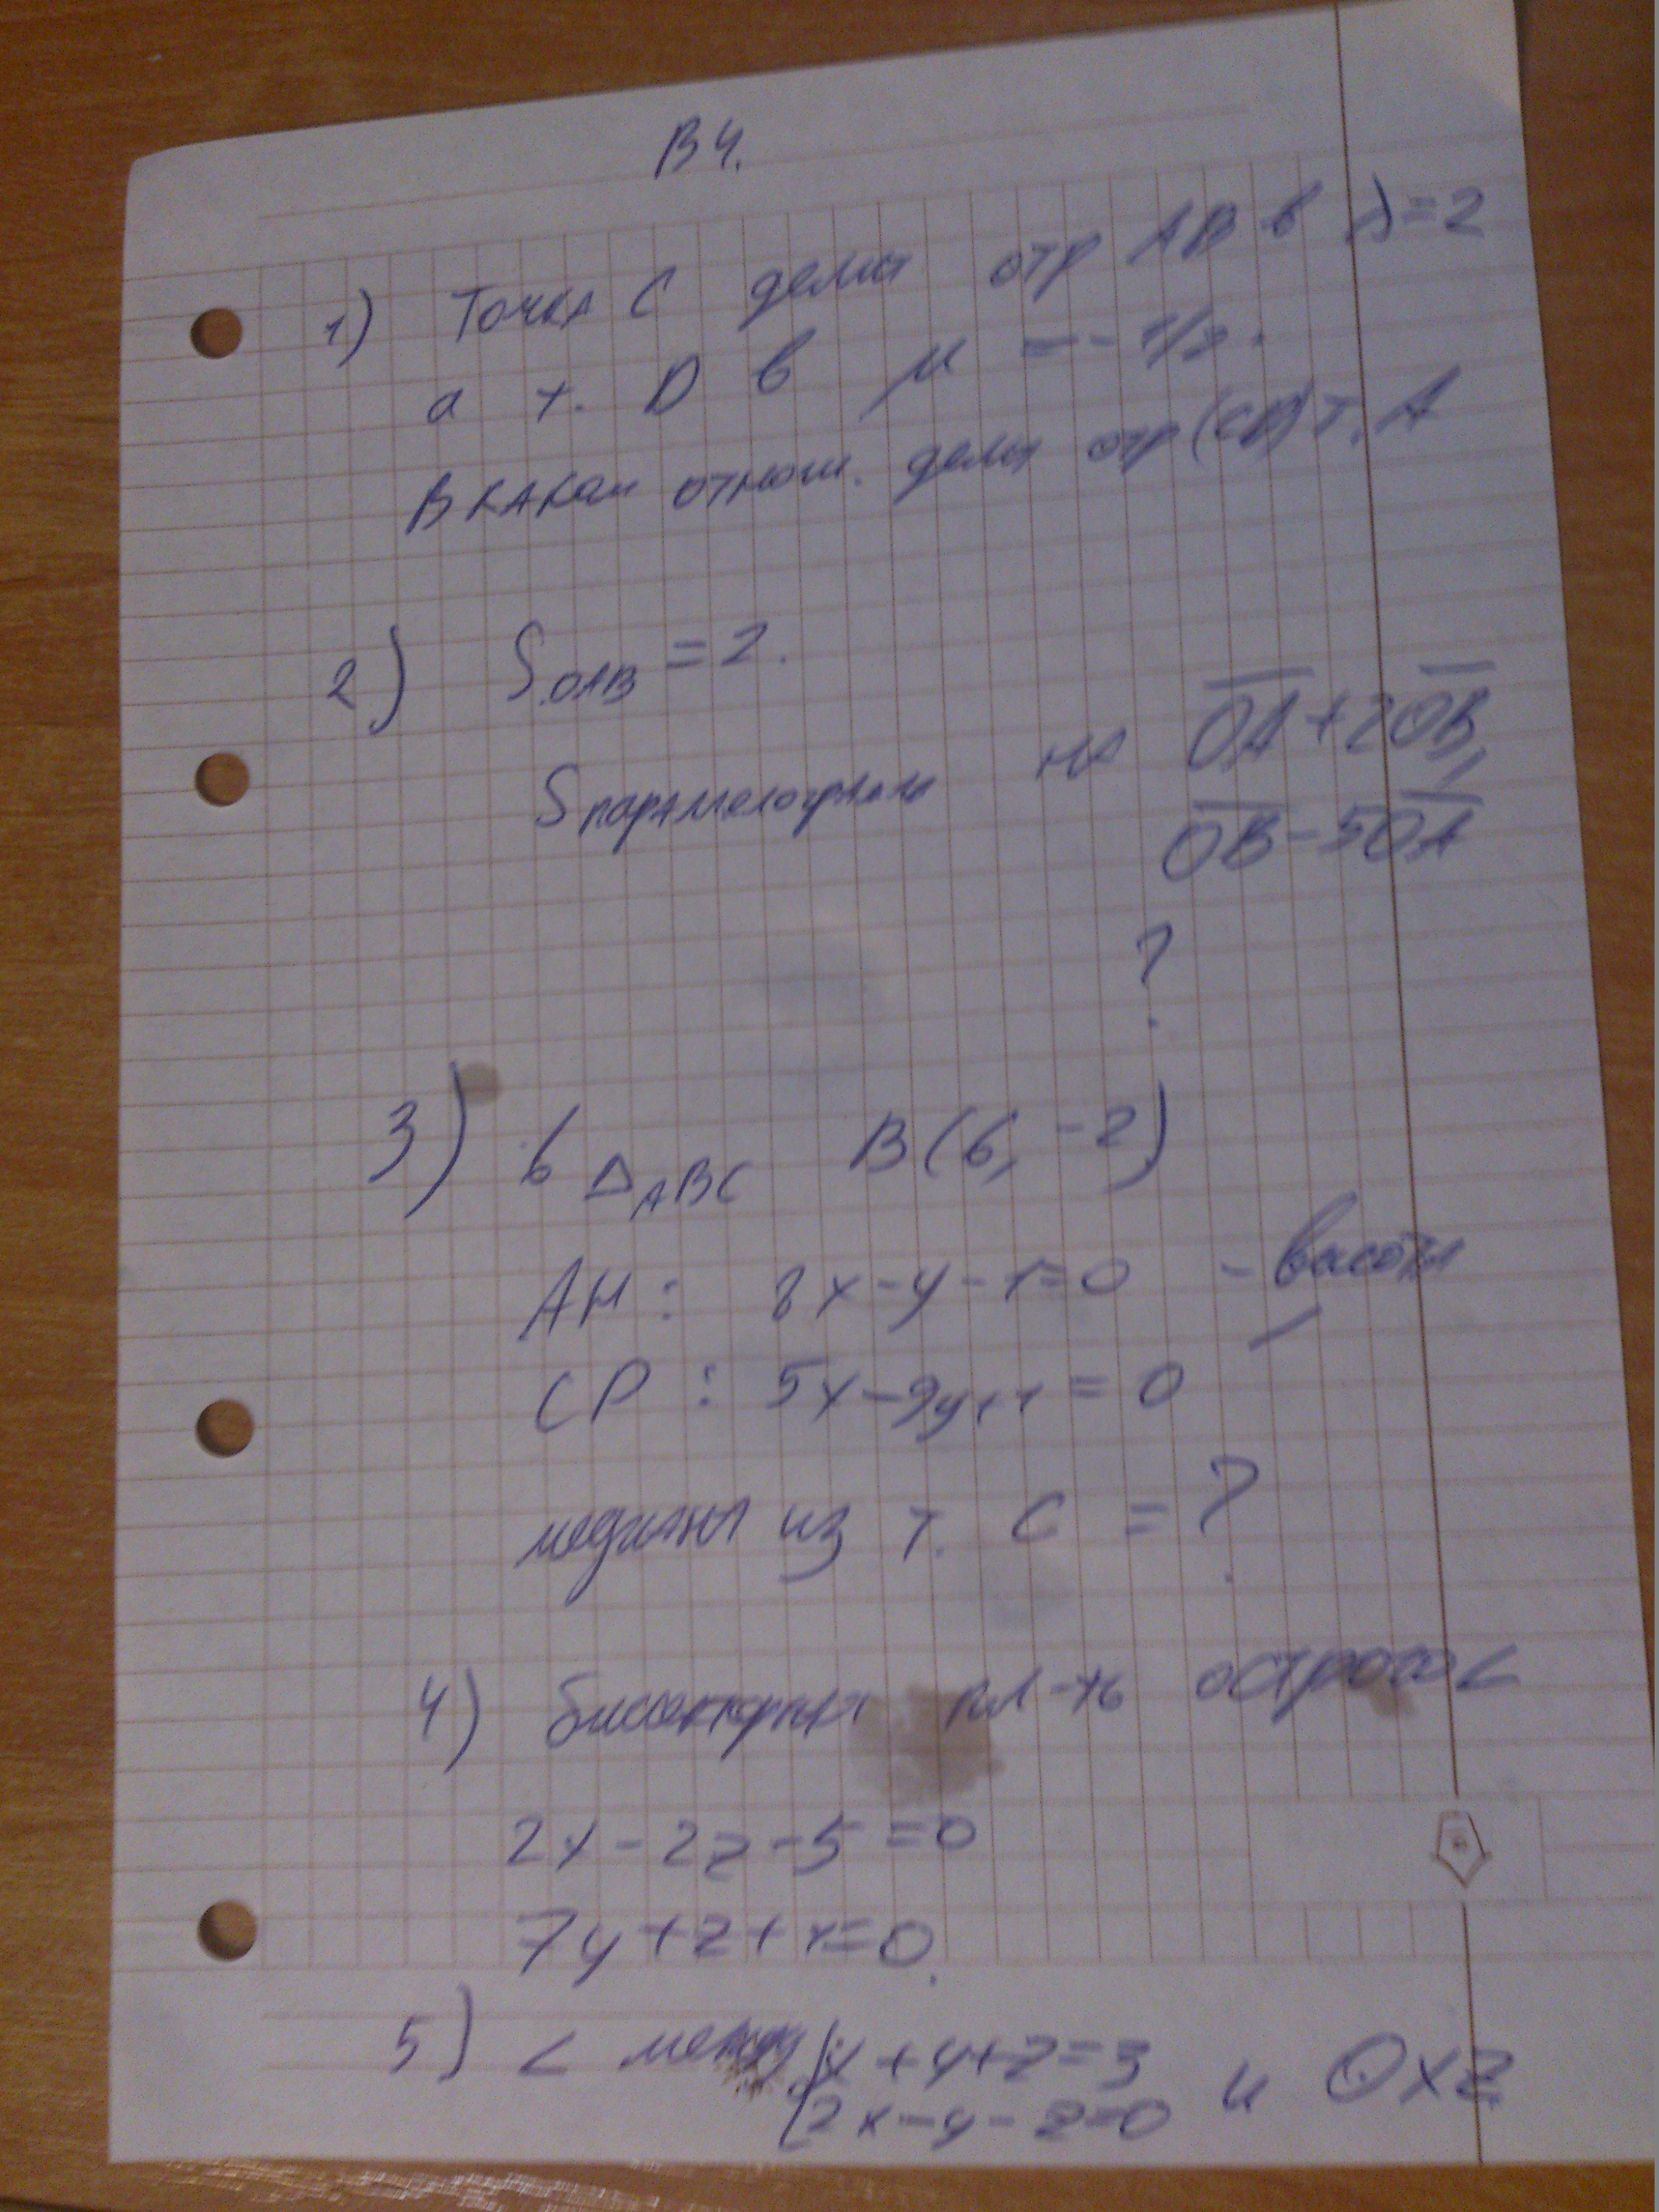 В 4.
1) Точка С делит отр АВ в λ=2
а т. D в μ = -1/2.
В каком отнош. делит отр (CB) т. А
2) S OAB = 2.
S параллелограмм на OA + 2OB,
OB - 5OA
?
3) в Δ ABC B(6, -2)
AH: 8x - y - 1 = 0 - высоты
CP: 5x - 9y + 1 = 0
медианы из т. С = ?
4) биссектриса пл-ть острого <
2x - 2z - 5 = 0
7y + z + 1 = 0.
5) < между { x + y + z = 3 и Oxz
2x - y - z = 0